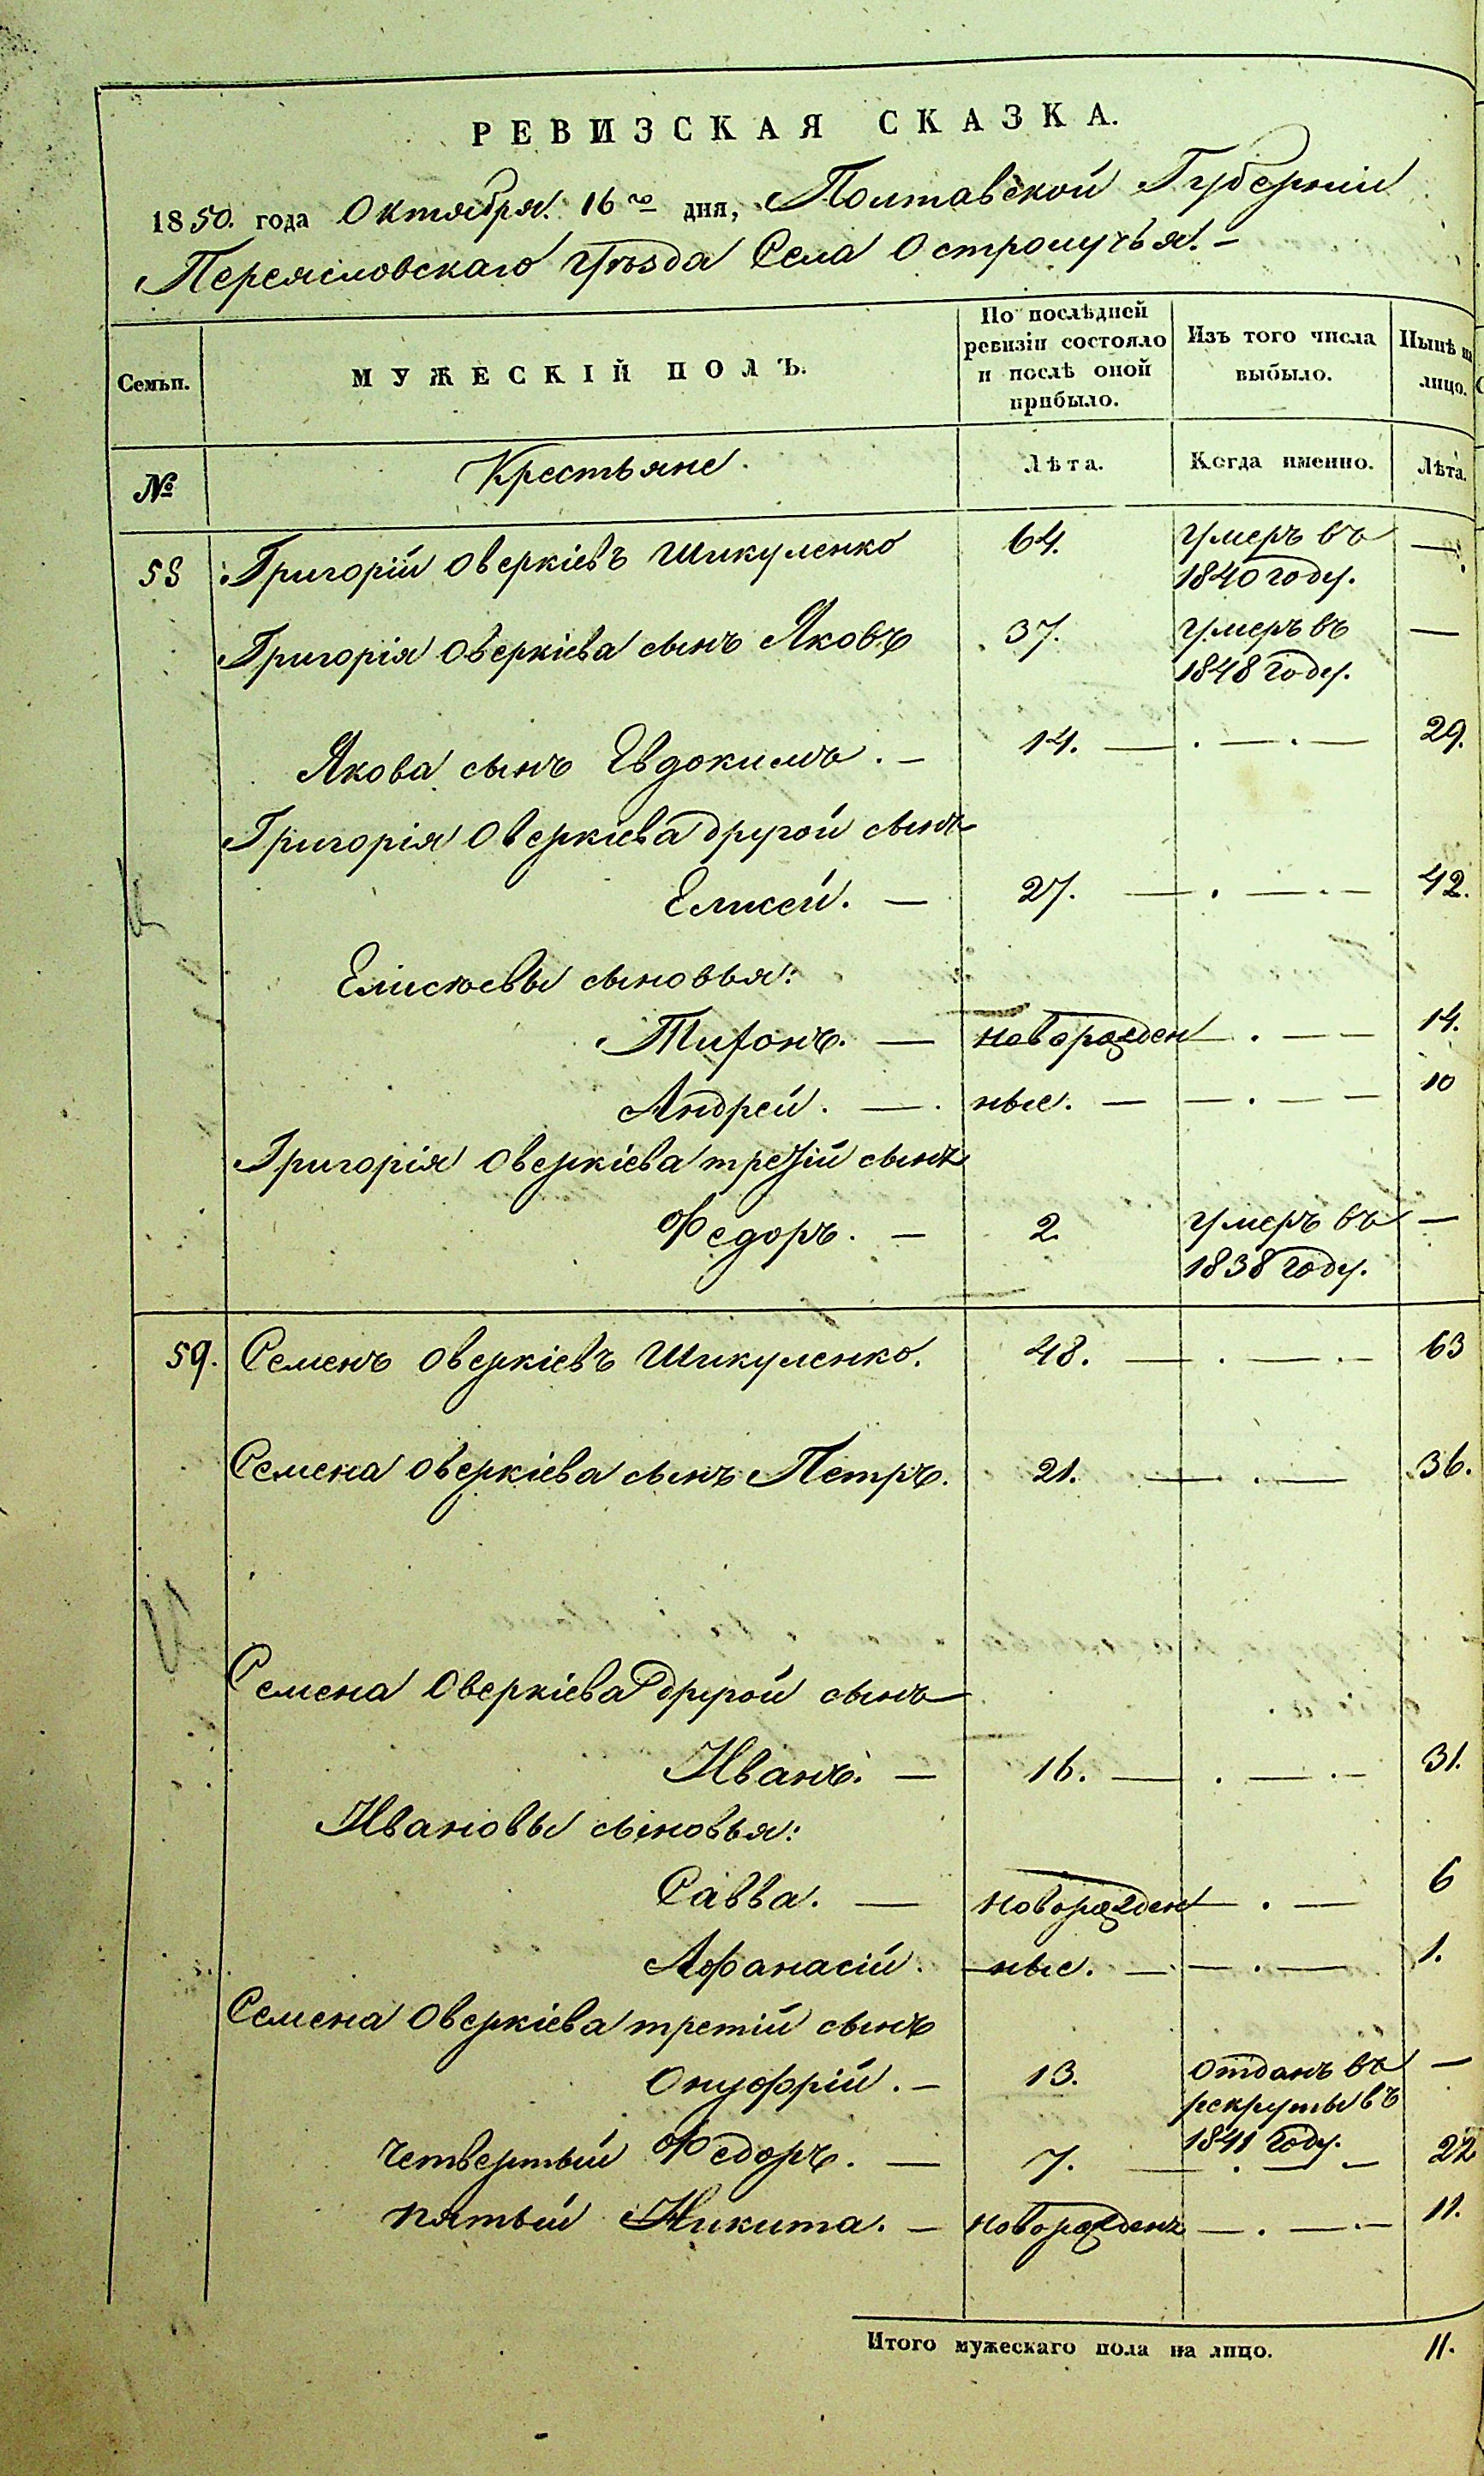 РЕВИЗСКАЯ СКАЗКА.
1850. года Октября 16го дня, Полтавской Губерніи
Переясловскаго Уѣзда Села Остролучья. -
Семьи. МУЖЕСКІЙ ПОЛЪ. По послѣдней ревизіи состояло и послѣ оной прибыло. Изъ того числа выбыло. Нынѣ на лицо.
№ Крестьяне. Лѣта. Когда именно. Лѣта.
58 Григорій Оверкіевъ Шикуленко 64. Умеръ въ —
1840 году.
Григорія Оверкіева сынъ Яковъ 37. Умеръ въ —
1848 году.
Якова сынъ Евдокимъ. — 14. — . — . — 29.
Григорія Оверкіева другой сынъ
Елисей. — 27. — . — . — 42.
Елисѣевы сыновья:
Тифонъ. — новорожден — . — — 14.
Андрей. — . ные. — — . — — 10
Григорія Оверкіева третій сынъ
Федоръ. — 2 Умеръ въ —
1838 году.
59. Семенъ Оверкіевъ Шикуленко. 48. — . — . — 63
Семена Оверкіева сынъ Петръ. 21. — . — 36.
Семена Оверкіева другой сынъ
Иванъ. — 16. — . — . — 31.
Ивановы сыновья:
Савва. — новорожден — . — 6
Афанасій. ные. — . — . — 1.
Семена Оверкіева третій сынъ
Онуфрій. — 13. Отданъ въ —
рекруты въ
1841 году.
четвертый Федоръ. — 7. — . — — 22
пятый Никита. — новорожденъ — . — . — 11.
Итого мужескаго пола на лицо. 11.